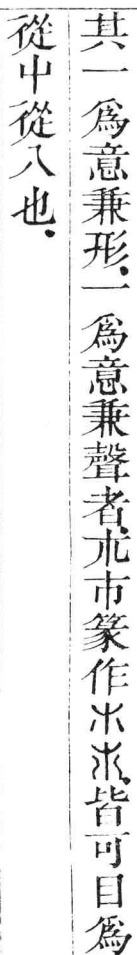 其一爲意兼形、一爲意兼聲者、市篆作皆可目爲
從中從八也、